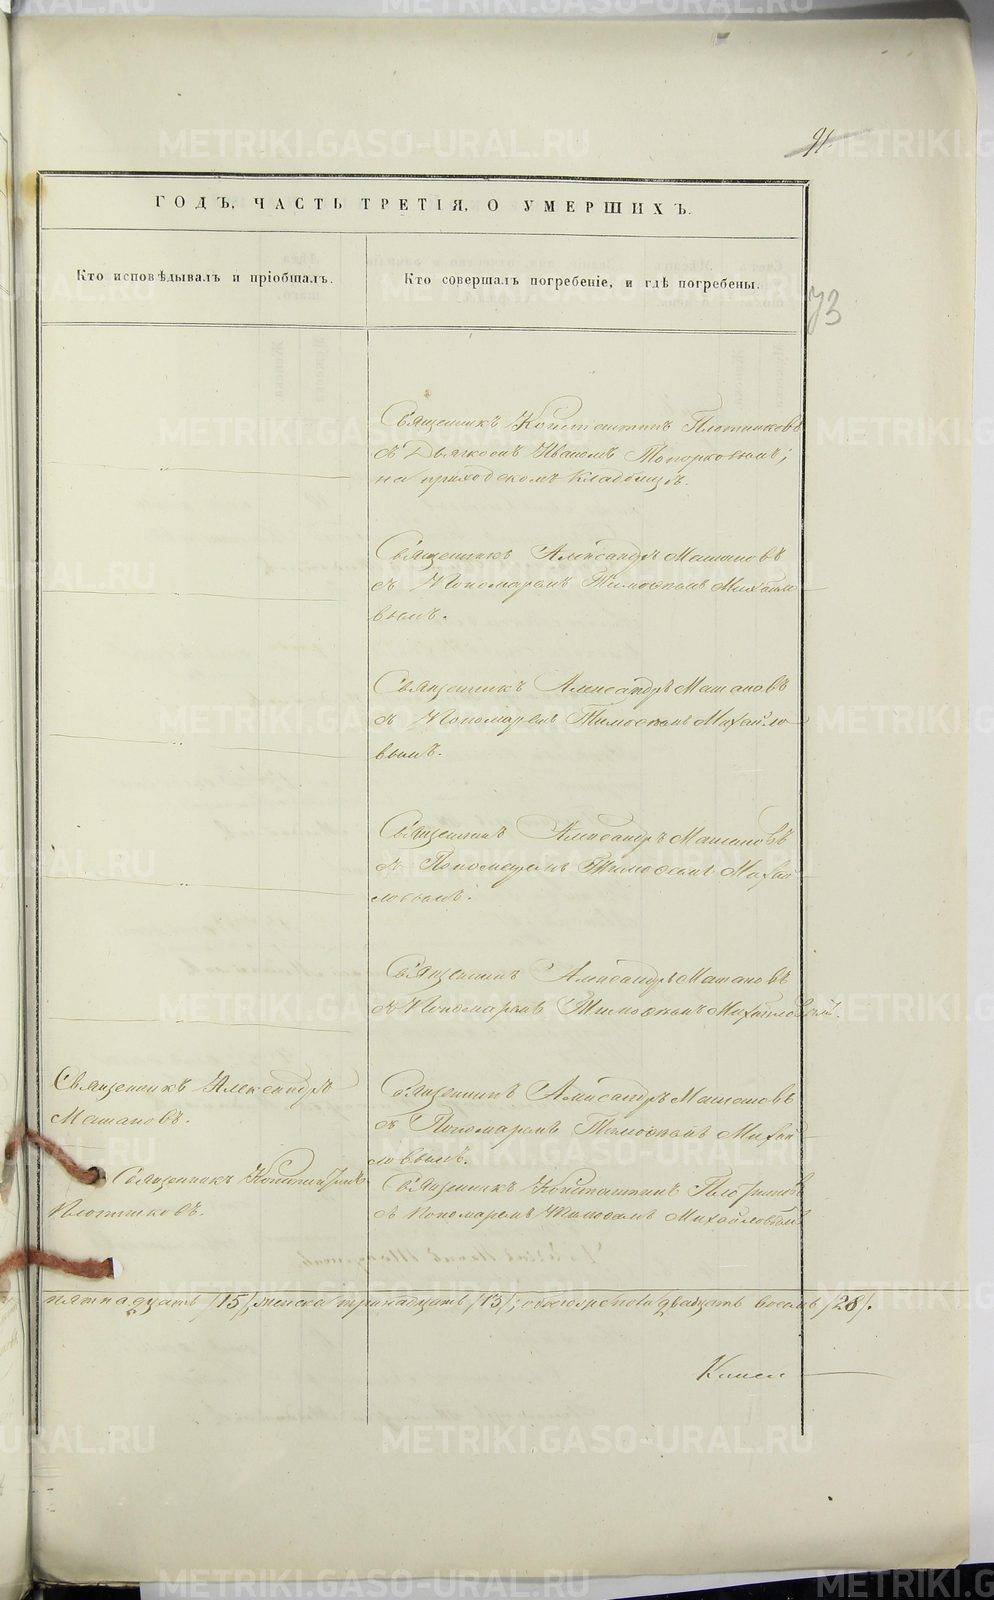 91.
ГОДЪ, ЧАСТЬ ТРЕТІЯ, О УМЕРШИХЪ.
Кто исповѣдывалъ и пріобщалъ.
Кто совершалъ погребеніе, и гдѣ погребены.
73
Священникъ Константинъ Плотниковъ
съ Дьячкомъ Иваномъ Топорковымъ;
на приходскомъ кладбищѣ.
Священникъ Александръ Матановъ
съ Пономаремъ Тимоѳеемъ Михайло
вымъ.
Священникъ Александръ Матановъ
съ Пономаремъ Тимоѳеемъ Михайло
вымъ.
Священникъ Александръ Матановъ
съ Пономаремъ Тимоѳеемъ Михай
ловымъ.
Священникъ Александръ Матановъ
съ Пономаремъ Тимоѳеемъ Михайловымъ.
Священникъ Александръ
Матановъ.
Священникъ Александръ Матановъ
съ Пономаремъ Тимоѳеемъ Михай
ловымъ.
Священникъ Константинъ
Плотниковъ.
Священникъ Константинъ Плотниковъ
съ Пономаремъ Тимоѳеемъ Михайловымъ
пятнадцать /15/, женска тринадцать /13/; обоего пола двадцать восемь /28/.
METRIKI.GASO-URAL.RU